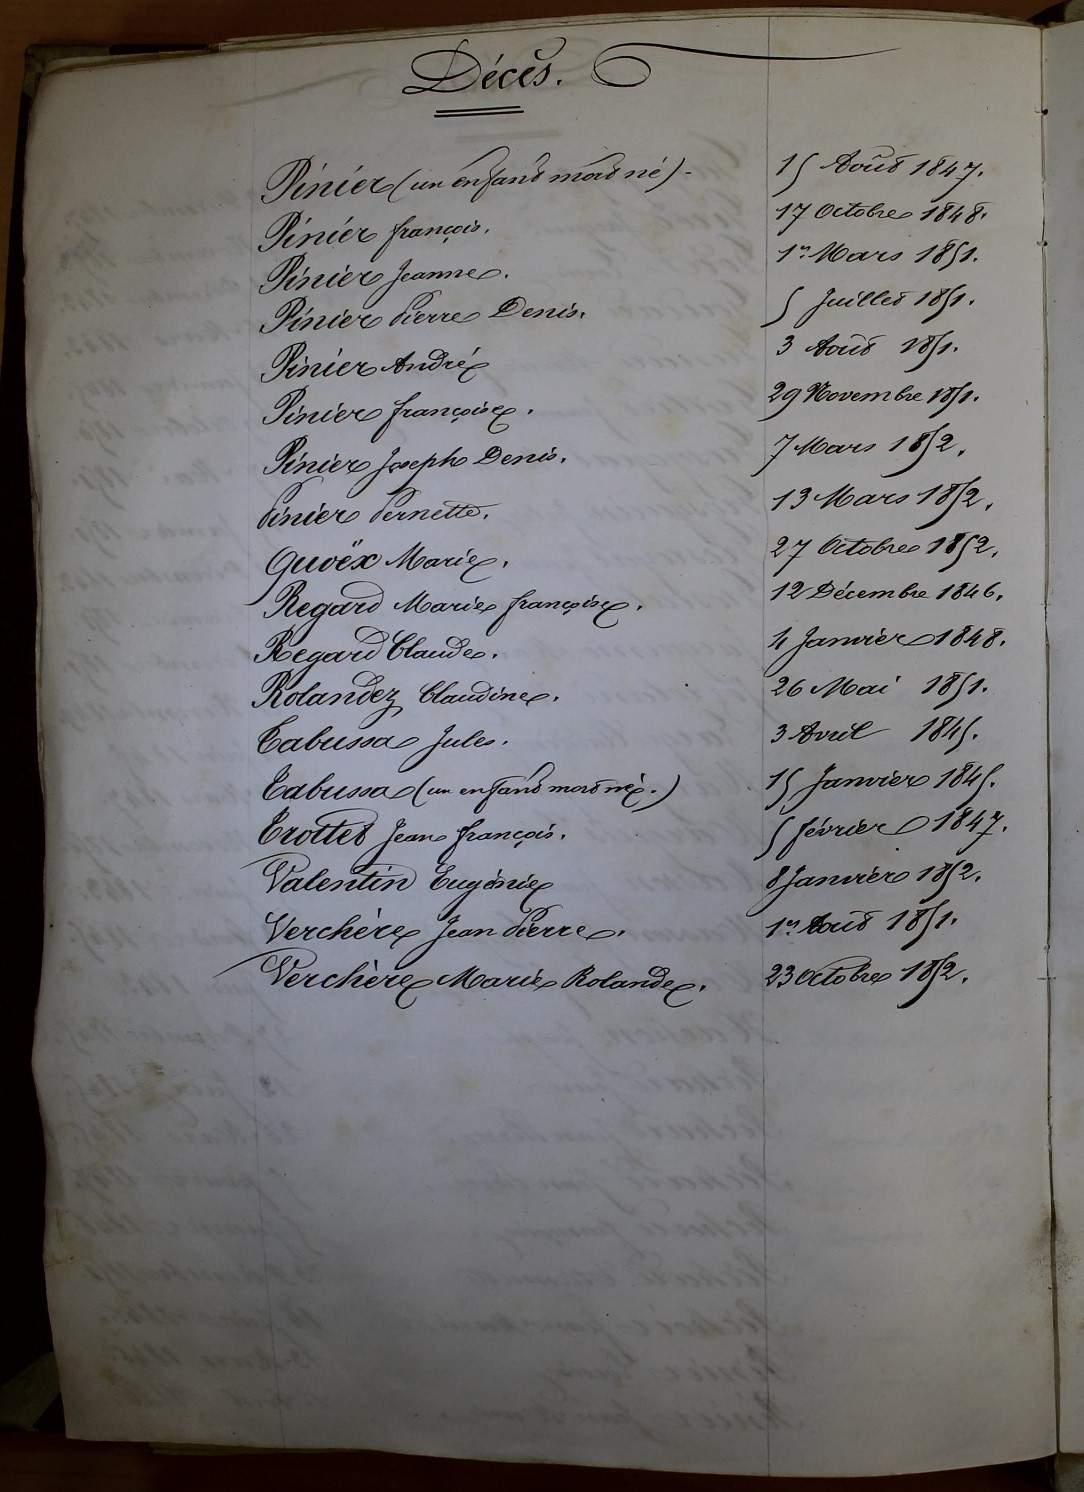 Décès.
Pinier (un enfant mort né) - 15 Août 1847.
Pinier françois. 17 Octobre 1848.
Pinier Jeanne. 1er Mars 1851.
Pinier Pierre Denis. 5 Juillet 1851.
Pinier André 3 Août 1851.
Pinier françoise. 29 Novembre 1851.
Pinier Joseph Denis. 7 Mars 1852.
Pinier Pernette. 13 Mars 1852.
Quoëx Marie. 27 Octobre 1852.
Regard Marie françoise. 12 Décembre 1846.
Regard Claude. 4 Janvier 1848.
Rolandez Claudine. 26 Mai 1851.
Tabussa Jules. 3 Avril 1845.
Tabussa (un enfant mort né.) 15 Janvier 1845.
Trottet Jean françois. 5 février 1847.
Valentin Eugénie 8 Janvier 1852.
Verchère Jean Pierre. 1er Août 1851.
Verchère Marie Rolande. 23 Octobre 1852.